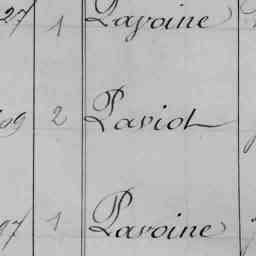 27 1 Pavoine
09 2 Paviot
07 1 Pavoine